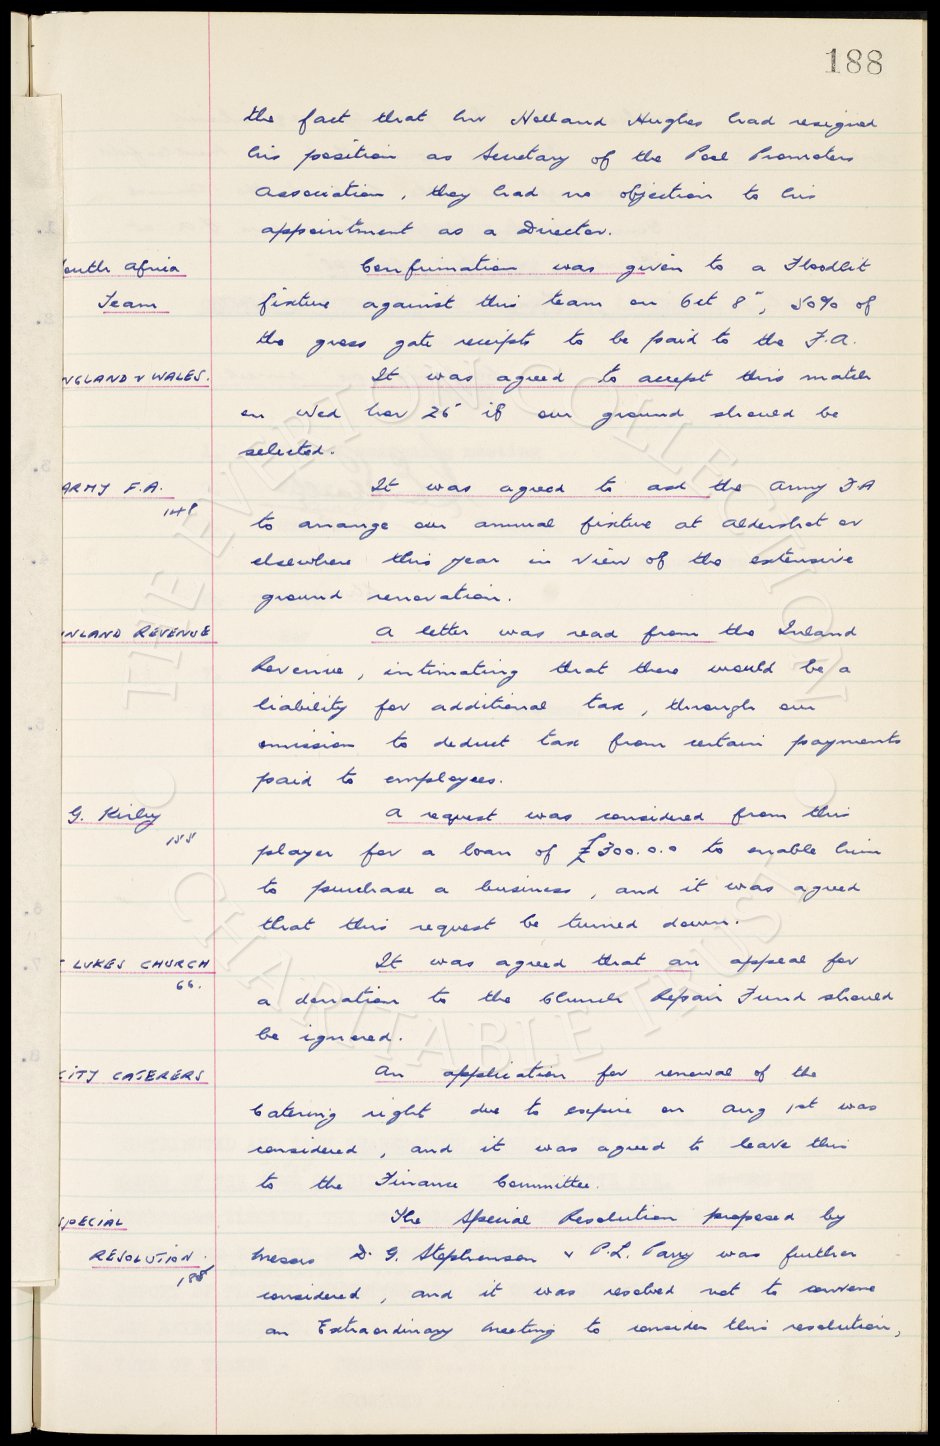 188
the fact that Mr Holland Hughes had resigned
his position as Secretary of the Pool Promoters
Association, they had no objection to his
appointment as a Director.
outh Africa
Team
Confirmation was given to a Floodlit
fixture against this team on Oct 8", 50% of
the gross gate receipts to be paid to the F.A.
NGLAND v WALES.
It was agreed to accept this match
on Wed Nov 26" if our ground should be
selected.
ARMY F.A.
It was agreed to ask the Army FA
to arrange our annual fixture at Aldershot or
elsewhere this year in view of the extensive
ground renovation.
INLAND REVENUE
A letter was read from the Inland
Revenue, intimating that there would be a
liability for additional tax, through our
omission to deduct tax from certain payments
paid to employees.
G. Kirby
A request was considered from this
player for a loan of £300.0.0 to enable him
to purchase a business, and it was agreed
that this request be turned down.
LUKES CHURCH
66.
It was agreed that an appeal for
a donation to the Church Repair Fund should
be ignored.
CITY CATERERS
An application for renewal of the
Catering right due to expire on Aug 1st was
considered, and it was agreed to leave this
to the Finance Committee.
SPECIAL
RESOLUTION.
The Special Resolution proposed by
Messrs D. G. Stephenson & P.L. Parry was further
considered, and it was resolved not to convene
an Extraordinary Meeting to consider this resolution,
THE EVERTON COLLECTION
CHARITABLE TRUST